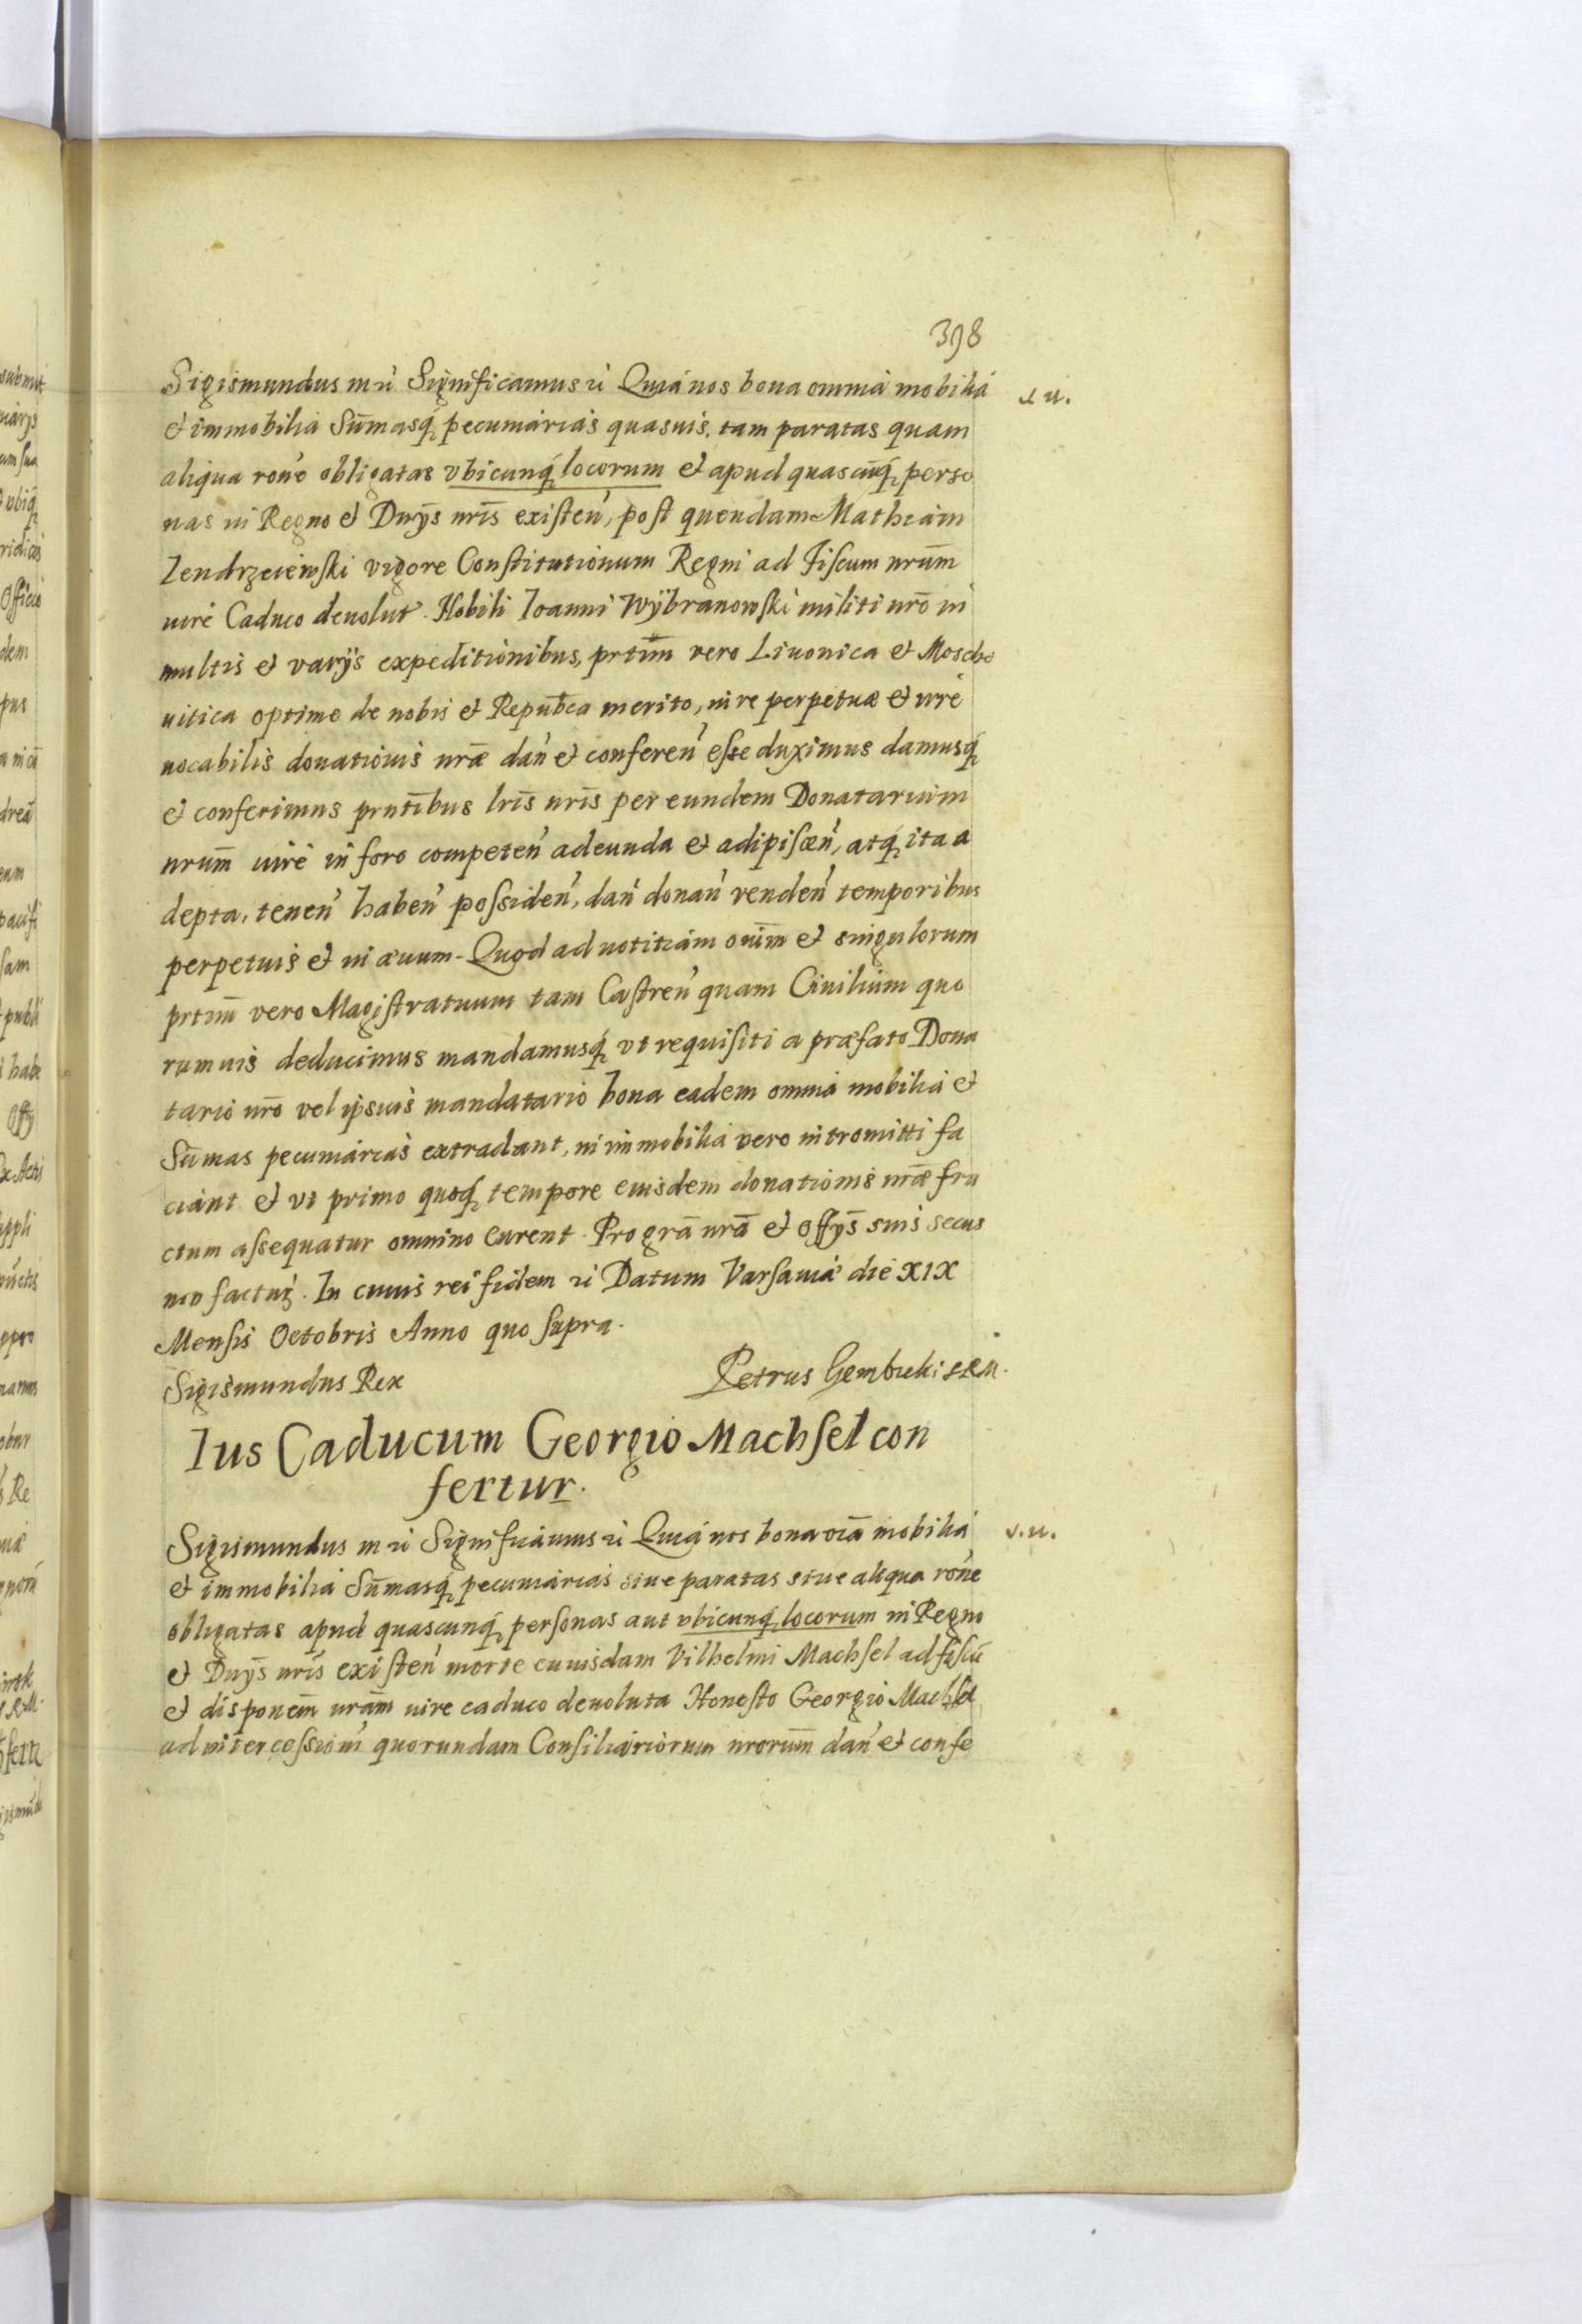 398
Sigismundus III &c Significamus &c Quia nos bona omnia mobilia
et immobilia Sum̄asq́ pecuniarias quasuis, tam paratas quam
aliqua rone obligatas vbicunq́ locorum et apud quascūq́ perso
nas in Regno et Dnijs nr̄is existen, post quendam Mathiam
Jendrzeiewski vigore Constitutionum Regni ad Fiscum nrūm
iure Caduco deuolut. Nobili Ioanni Wÿbranowski militi nr̄o in
multis et varijs expeditionibus, prtim̄ vero Liuonica et Moscho
uitica optime de nobis et Repub̄ca merito, iure perpetuæ et irre
uocabilis donationis nr̄æ dan et conferen esse duximus damusq́
et conferimus prn̄tibus lr̄is nr̄is per eundem Donatarium
nrūm iure in foro competen adeunda et adipiscen, atq́ ita a
depta, tenen haben possiden, dan donan venden temporibus
perpetuis et in æuum. Quod ad notitiam oīum et singulorum
prtim̄ vero Magistratuum tam Castren quam Ciuilium quo
rumuis deducimus mandamusq́ vt requisiti a præfato Dona
tario nr̄o vel ipsius mandatario bona eadem omnia mobilia et
Sūmas pecuniarias extradant, in immobilia vero intromitti fa
ciant et vt primo quoq́ tempore eiusdem donationis nr̄æ fru
ctum assequatur omnino curent. Pro grā nr̄a et offijs suis secus
non factur. In cuius rei fidem &c Datum Varsauiæ die XIX
Mensis Octobris Anno quo supra.
Sigismundus Rex Petrus Gembicki
Ius Caducum Georgio Machsel con
fertur.
Sigismundus III &c Significamus &c Quia nos bona oīa mobilia
et immobilia Sūmasq́ pecuniarias siue paratas siue aliqua rone
obligatas apud quascunq́ personas aut vbicunq́ locorum in Regno
et Dnijs nr̄is existen morte cuiusdam Vilhelmi Machsel ad fiscū
et disponem̄ nrām iure caduco deuoluta Honesto Georgio Machsel
ad intercessiom quorundam Consiliariorum nrorūm dan et confe